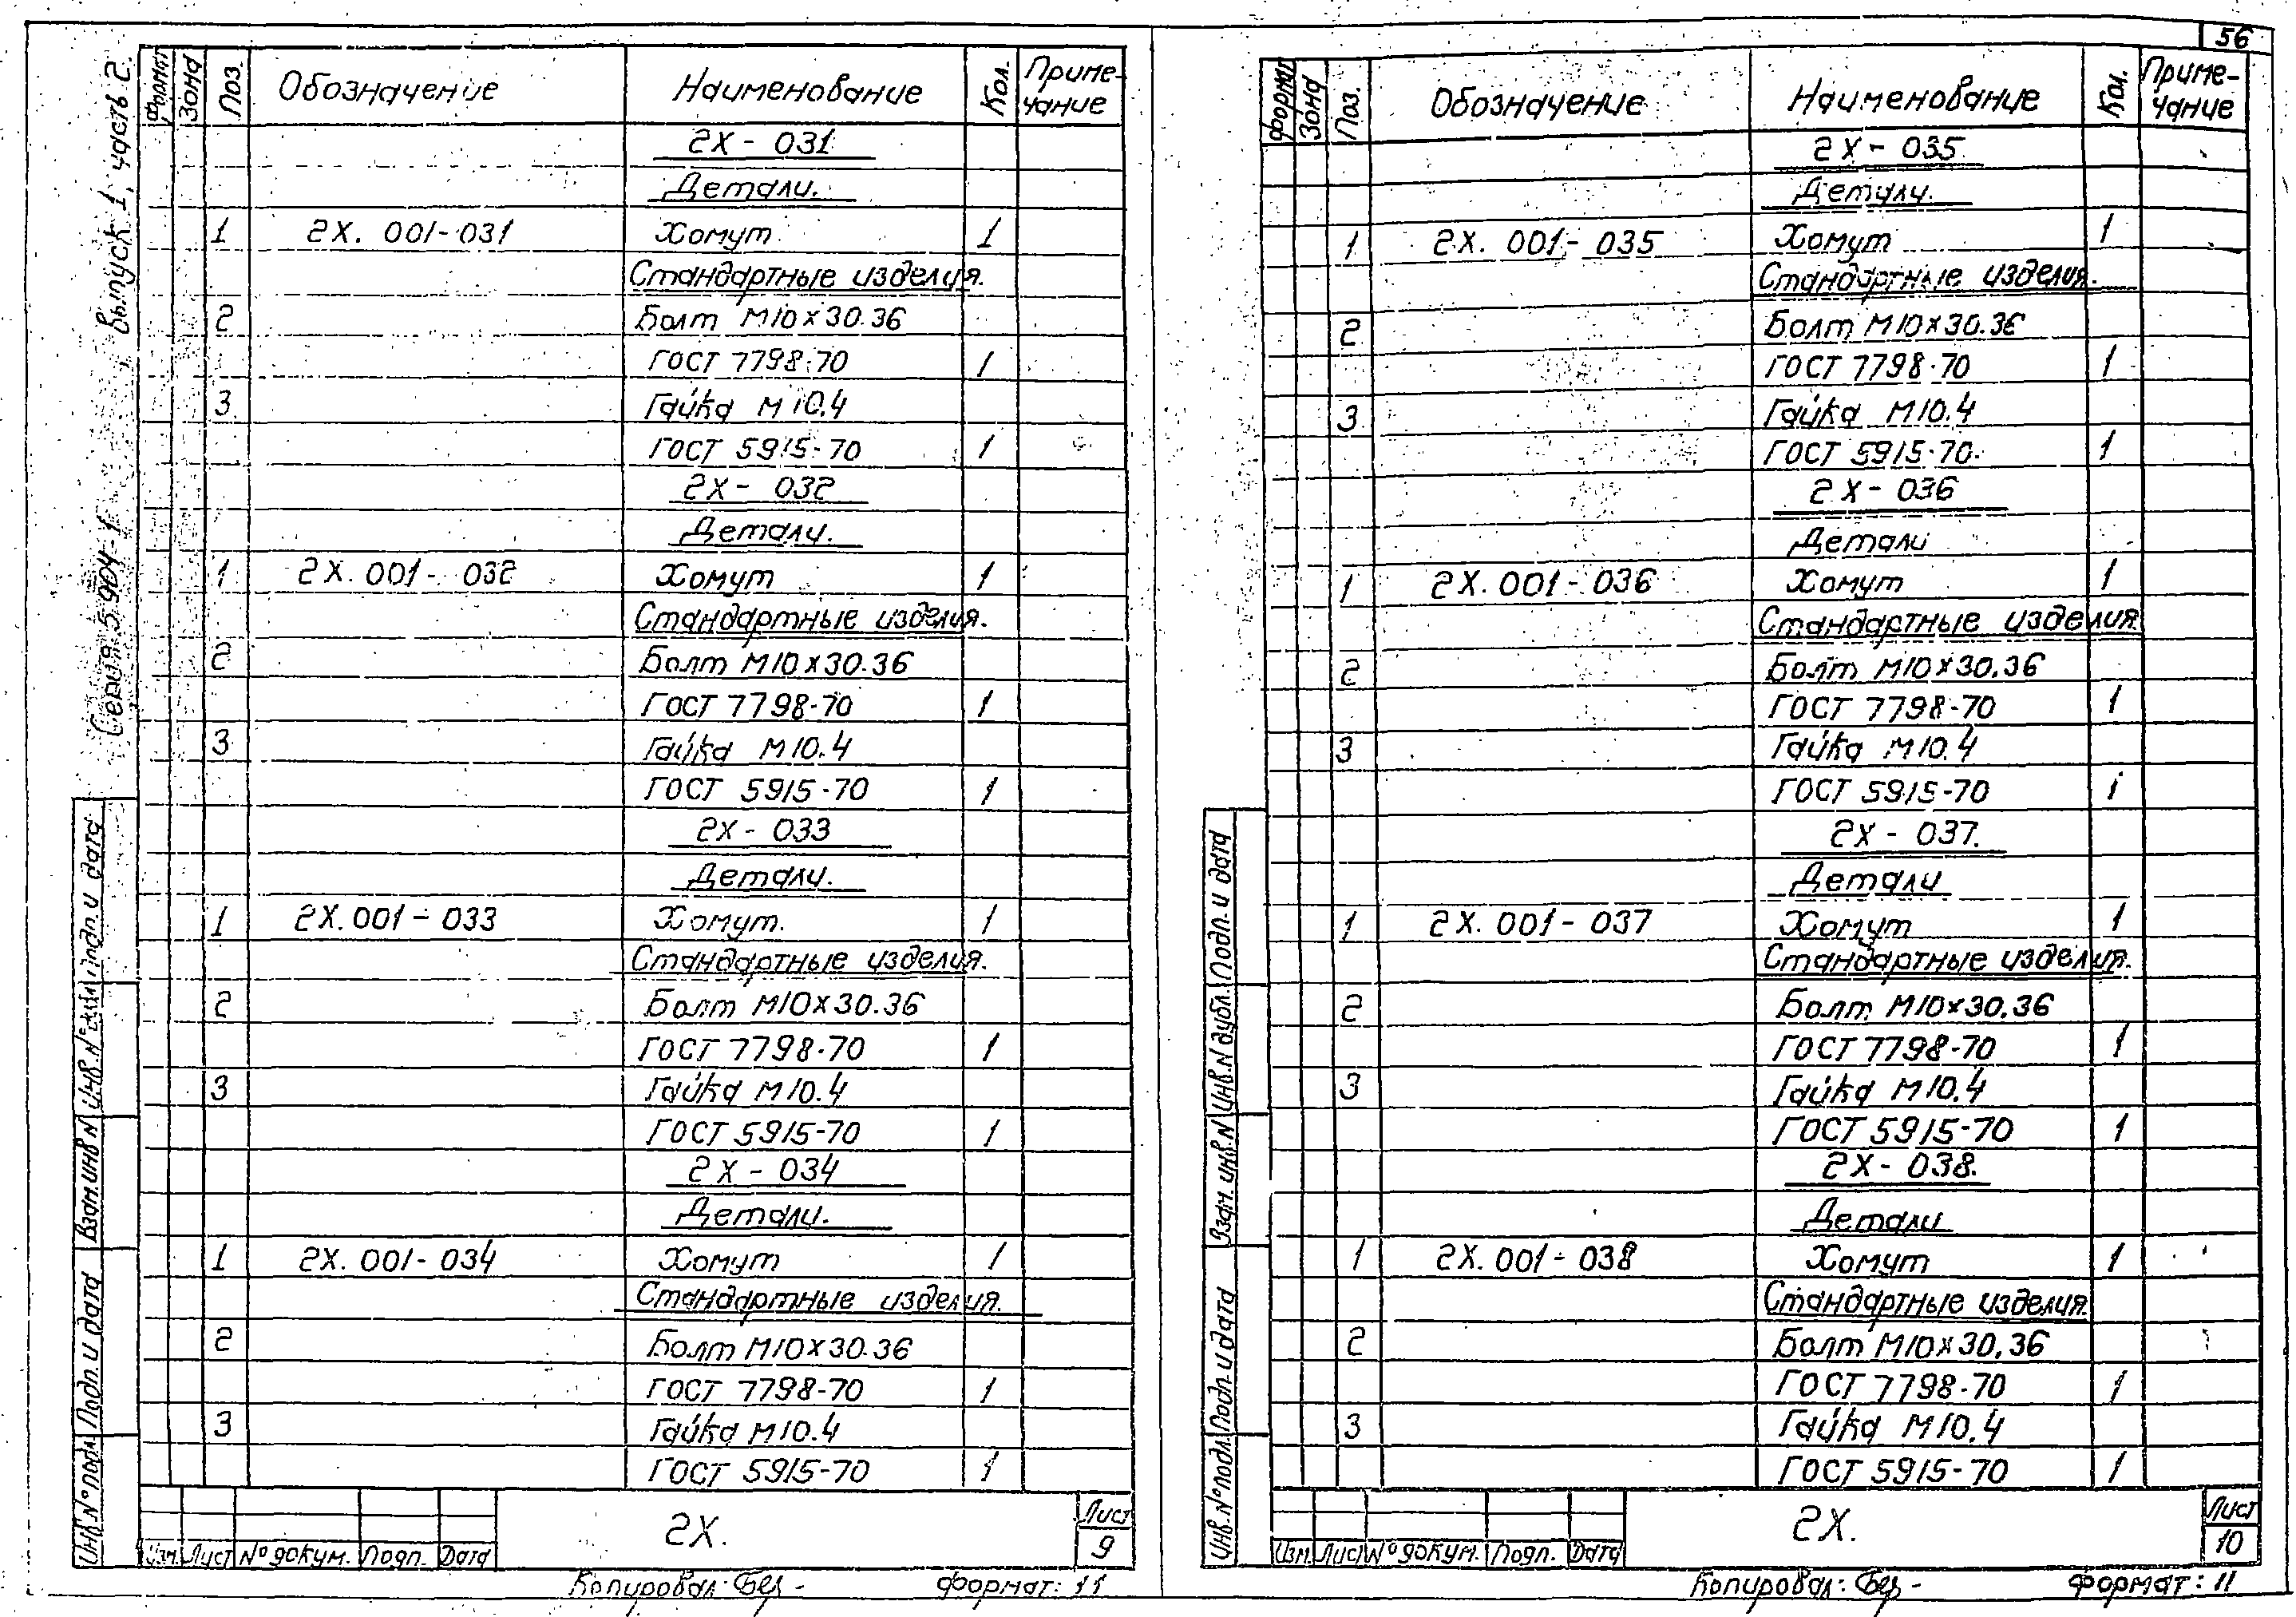 56
Серия 5.904-1 Выпуск 1, часть 2.
Формат Зона Поз. Обозначение Наименование Кол. Приме-
чание
2Х - 031
Детали.
1 2Х. 001-031 Хомут 1
Стандартные изделия.
2 Болт М10х30.36
ГОСТ 7798-70 1
3 Гайка М10.4
ГОСТ 5915-70 1
2Х - 032
Детали.
1 2Х.001 - 032 Хомут 1
Стандартные изделия.
2 Болт М10х30.36
ГОСТ 7798-70 1
3 Гайка М10.4
ГОСТ 5915-70 1
2Х - 033
Детали.
1 2Х.001 - 033 Хомут. 1
Стандартные изделия.
2 Болт М10х30.36
ГОСТ 7798-70 1
3 Гайка М10.4
ГОСТ 5915-70 1
2Х - 034
Детали.
1 2Х.001-034 Хомут 1
Стандартные изделия.
2 Болт М10х30.36
ГОСТ 7798-70 1
3 Гайка М10.4
ГОСТ 5915-70 1
Инв.№подл. Подп. и дата Взам.инв N Инв.№ Подп. и дата
Изм. Лист № докум. Подп. Дата
2Х.
Лист
9
Копировал: Формат: 11
Формат Зона Поз. Обозначение Наименование Кол. Приме-
чание
2Х - 035
Детали.
1 2Х. 001 - 035 Хомут 1
Стандартные изделия.
2 Болт М10х30.36
ГОСТ 7798-70 1
3 Гайка М10.4
ГОСТ 5915-70. 1
2Х - 036
Детали
1 2Х.001 - 036 Хомут 1
Стандартные изделия.
2 Болт М10х30.36
ГОСТ 7798-70 1
3 Гайка М10.4
ГОСТ 5915-70 1
2Х - 037.
Детали
1 2Х.001 - 037 Хомут 1
Стандартные изделия.
2 Болт М10х30.36
ГОСТ 7798-70 1
3 Гайка М10.4
ГОСТ 5915-70 1
2Х - 038.
Детали
1 2Х.001 - 038 Хомут 1
Стандартные изделия.
2 Болт М10х30.36
ГОСТ 7798-70 1
3 Гайка М10.4
ГОСТ 5915-70 1
Инв.№подл. Подп. и дата Взам. инв.N Инв.N дубл. Подп. и дата
Изм. Лист № докум. Подп. Дата
2Х.
Лист
10
Копировал: Формат: 11